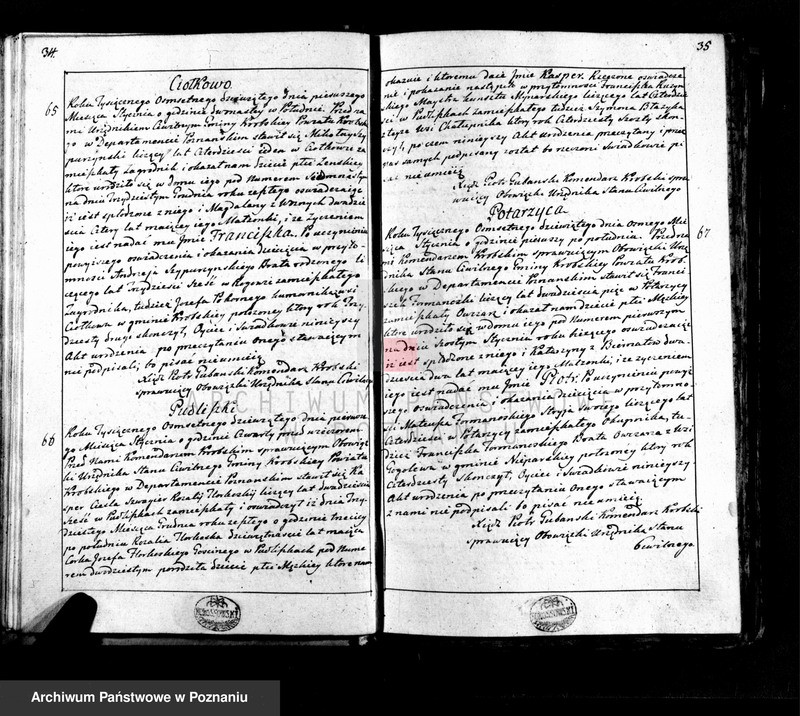 34.
Ciołkowo
65
Roku Tysiącznego Osmsetnego dziewiątego dnia pierwszego
Miesiąca Stycznia o godzinie dwunastey w Południe. Przed na
mi Urzędnikiem Cywilnym Gminy Krobskiey Powiatu Krobskie
go w Departamencie Poznanskim stawił się Mikołay
liczący lat Czterdzieści Jeden w Ciołkowie za
mieszkały Zagrodnik i okazał nam Dziecie płci Zenskiey
ktore urodziło się w Domu iego pod Numerem
na dniu Trzydziestym Grudnia roku zeszłego oswiadczaiąc
iż iest spłodzone z niego i Magdaleny z dwadzie
ścia Cztery lat maiącey iego Małżonki, i że życzeniem
iego iest nadać mu Jmie Franciszka. Po uczynieniu
powyższego oswiadczenia i okazania dziecięcia w przyto
mności Andrzeja Brata rodzonego li
czącego lat Trzydzieści Sześć w zamieszkałego
Zagrodnika, tudzież Józefa
Ciołkowa w gminie Krobskiey położoney który rok Trzy
dziesty drugi skończył, Oyciec i Swiadkowie ninieyszy
Akt urodzenia po przeczytaniu Onego stawaiącym
nie podpisali, bo pisać nie umieią
Xiądz Piotr Gubanski Komendarz Krobski
sprawuiący Obowiązki Urzędnika Stanu Cywilnego
Pudliszki
66
Roku Tysiącznego Osmsetnego dziewiątego dnia pierwsze
go Miesiąca Stycznia o godzinie Czwarty przed wieczorem
Przed Nami Komendarzem Krobskim sprawuiącym Obowiąz
ki Urzędnika Stanu Cywilnego Gminy Krobskiey Powiatu
Krobskiego w Departamencie Poznanskim stawił się Ka
sper Ciesla Szwagier Rozalij liczący lat dwadzieścia
Sześć w Pudliszkach zamieszkały i oswiadczył iż dnia Trzy
dziestego Miesiąca Grudnia roku zeszłego o godzinie trzeciey
po południu Rozalia dziewiętnaście lat maiąca
Corka Józefa Goscinego w Pudliszkach pod Nume
rem dwudziestym porodziła dziecie płci Męzkiey które nam
35
okazuie i ktoremu daie Jmie Kasper. Rzeczone oswiadcze
nie i pokazanie nastąpiło w przytomności Franciszka
skiego Maystra kunsztu Mynarskiego liczącego lat Czterdzieści
ści w Pudliszkach zamieszkałego tudzież Szymona Błażyka
z teyże Wsi Chałupnika który rok Czterdziesty Szosty skon
czył, po czem ninieyszy Akt Urodzenia przeczytany i przez
nas samych podpisany został bo rzeczoni Swiadkowie pi
sać nie umieią
Xiądz Piotr Gubanski Komendarz Krobski spra
wuiący Obowiązki Urzędnika Stanu Cywilnego
Potarzyca
67
Roku Tysiącznego Osmsetnego dziewiątego dnia Osmego Mie
siąca Stycznia o godzinie pierwszy po południu. Przed na
mi Komendarzem Krobskim sprawuiącym Obowiązki Urzę
dnika Stanu Cywilnego Gminy Krobskiey Powiatu Krob
skiego w Departamencie Poznanskim stawił się Franci
szek Furmanski liczący lat dwadzieścia pięć w Potarzycy
zamieszkały Owczarz i okazał nam dziecie płci Męzkiey
które urodziło się w domu iego pod Numerem pierwszym
na dniu Szostym Stycznia roku bieżącego oswiadczaiąc
iż iest spłodzone z niego i Katarzyny z Biernatow dwa
dzieścia dwa lat maiącey iego Małzonki, i ze życzeniem
iego iest nadać mu Jmie Piotr. Po uczynieniu powyż
szego Oswiadczenia i okazania dziecięcia w przytomno
ści Mateusza Furmanskiego Stryja swoiego liczącego lat
Czterdzieści w Potarzycy zamieszkałego Okupnika, tu
dzież Franciszka Furmanskiego Brata Owczarza z Wsi
Gogolewa w gminie Niepartskiey położoney który rok
Czterdziesty skonczył, Oyciec i Swiadkowie ninieyszy
Akt urodzenia po przeczytaniu Onego stawaiącym
z nami nie podpisali bo pisać nie umieią.
Xiądz Piotr Gubanski Komendarz Krobski
sprawuiący Obowiązki Urzędnika Stanu
Cewilnego
ARCHIWUM PAŃSTWOWE
W POZNANIU
Archiwum Państwowe w Poznaniu